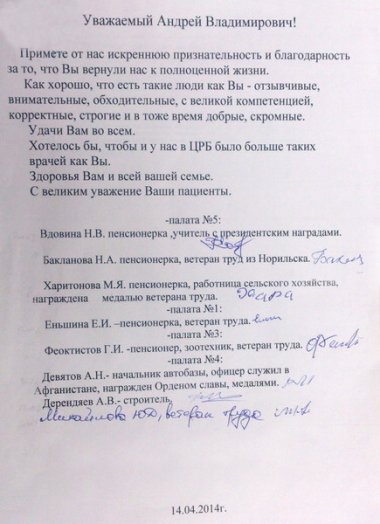 Уважаемый Андрей Владимирович!
Примете от нас искреннюю признательность и благодарность
за то, что Вы вернули нас к полноценной жизни.
Как хорошо, что есть такие люди как Вы - отзывчивые,
внимательные, обходительные, с великой компетенцией,
корректные, строгие и в тоже время добрые, скромные.
Удачи Вам во всем.
Хотелось бы, чтобы и у нас в ЦРБ было больше таких
врачей как Вы.
Здоровья Вам и всей вашей семье.
С великим уважение Ваши пациенты.
-палата №5:
Вдовина Н.В. пенсионерка ,учитель с президентским наградами.
Бакланова Н.А. пенсионерка, ветеран труд из Норильска.
Харитонова М.Я. пенсионерка, работница сельского хозяйства,
награждена медалью ветерана труда.
-палата №1:
Еньшина Е.И. –пенсионерка, ветеран труда.
Феоктистов Г.И. -пенсионер, зоотехник, ветеран труда.
-палата №4:
Девятов А.Н.- начальник автобазы, офицер служил в
Афганистане, награжден Орденом славы, медалями.
Дерендяев А.В.- строитель.
Михайлова Ю.Д, ветеран труда
14.04.2014г.